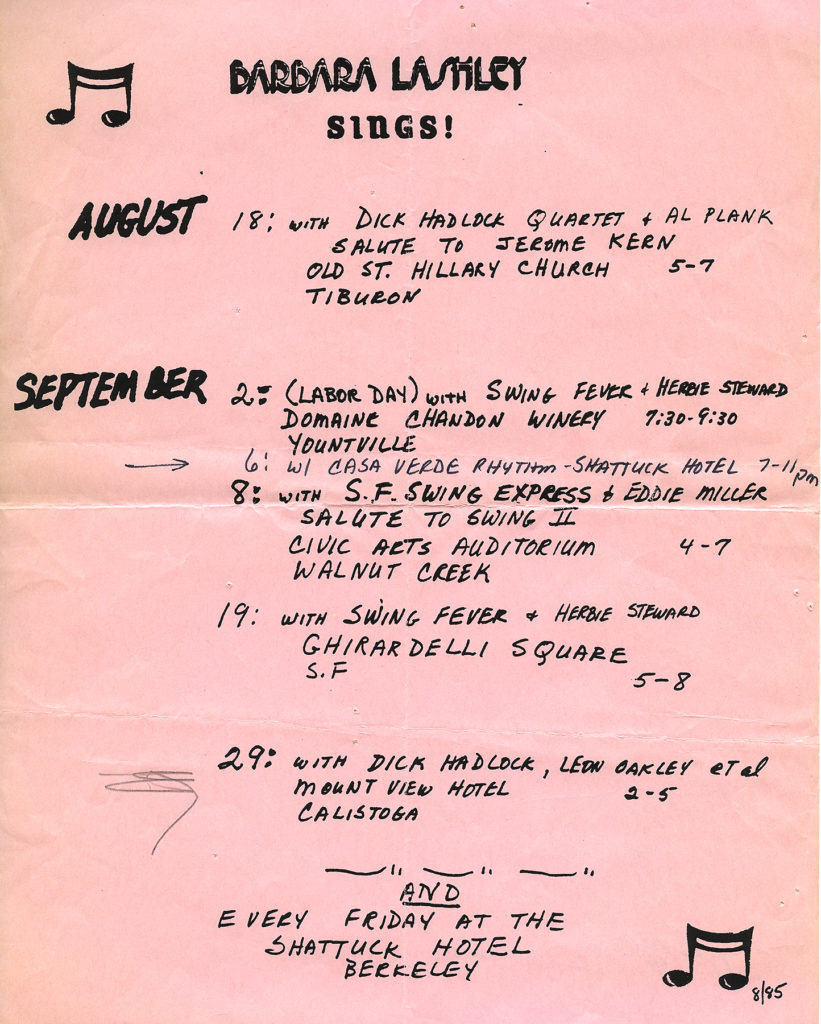 BARBARA LASHLEY
SINGS!
AUGUST 18: WITH DICK HADLOCK QUARTET & AL PLANK
SALUTE TO JEROME KERN
OLD ST. HILLARY CHURCH 5-7
TIBURON
SEPTEMBER 2: (LABOR DAY) WITH SWING FEVER & HERBIE STEWARD
DOMAINE CHANDON WINERY 7:30-9:30
YOUNTVILLE
→ 6: W/ CASA VERDE RHYTHM - SHATTUCK HOTEL 7-11 pm
8: WITH S.F. SWING EXPRESS & EDDIE MILLER
SALUTE TO SWING II
CIVIC ARTS AUDITORIUM 4-7
WALNUT CREEK
19: WITH SWING FEVER & HERBIE STEWARD
GHIRARDELLI SQUARE
S.F 5-8
29: WITH DICK HADLOCK, LEON OAKLEY et al
MOUNT VIEW HOTEL 2-5
CALISTOGA
AND
EVERY FRIDAY AT THE
SHATTUCK HOTEL
BERKELEY
8/85